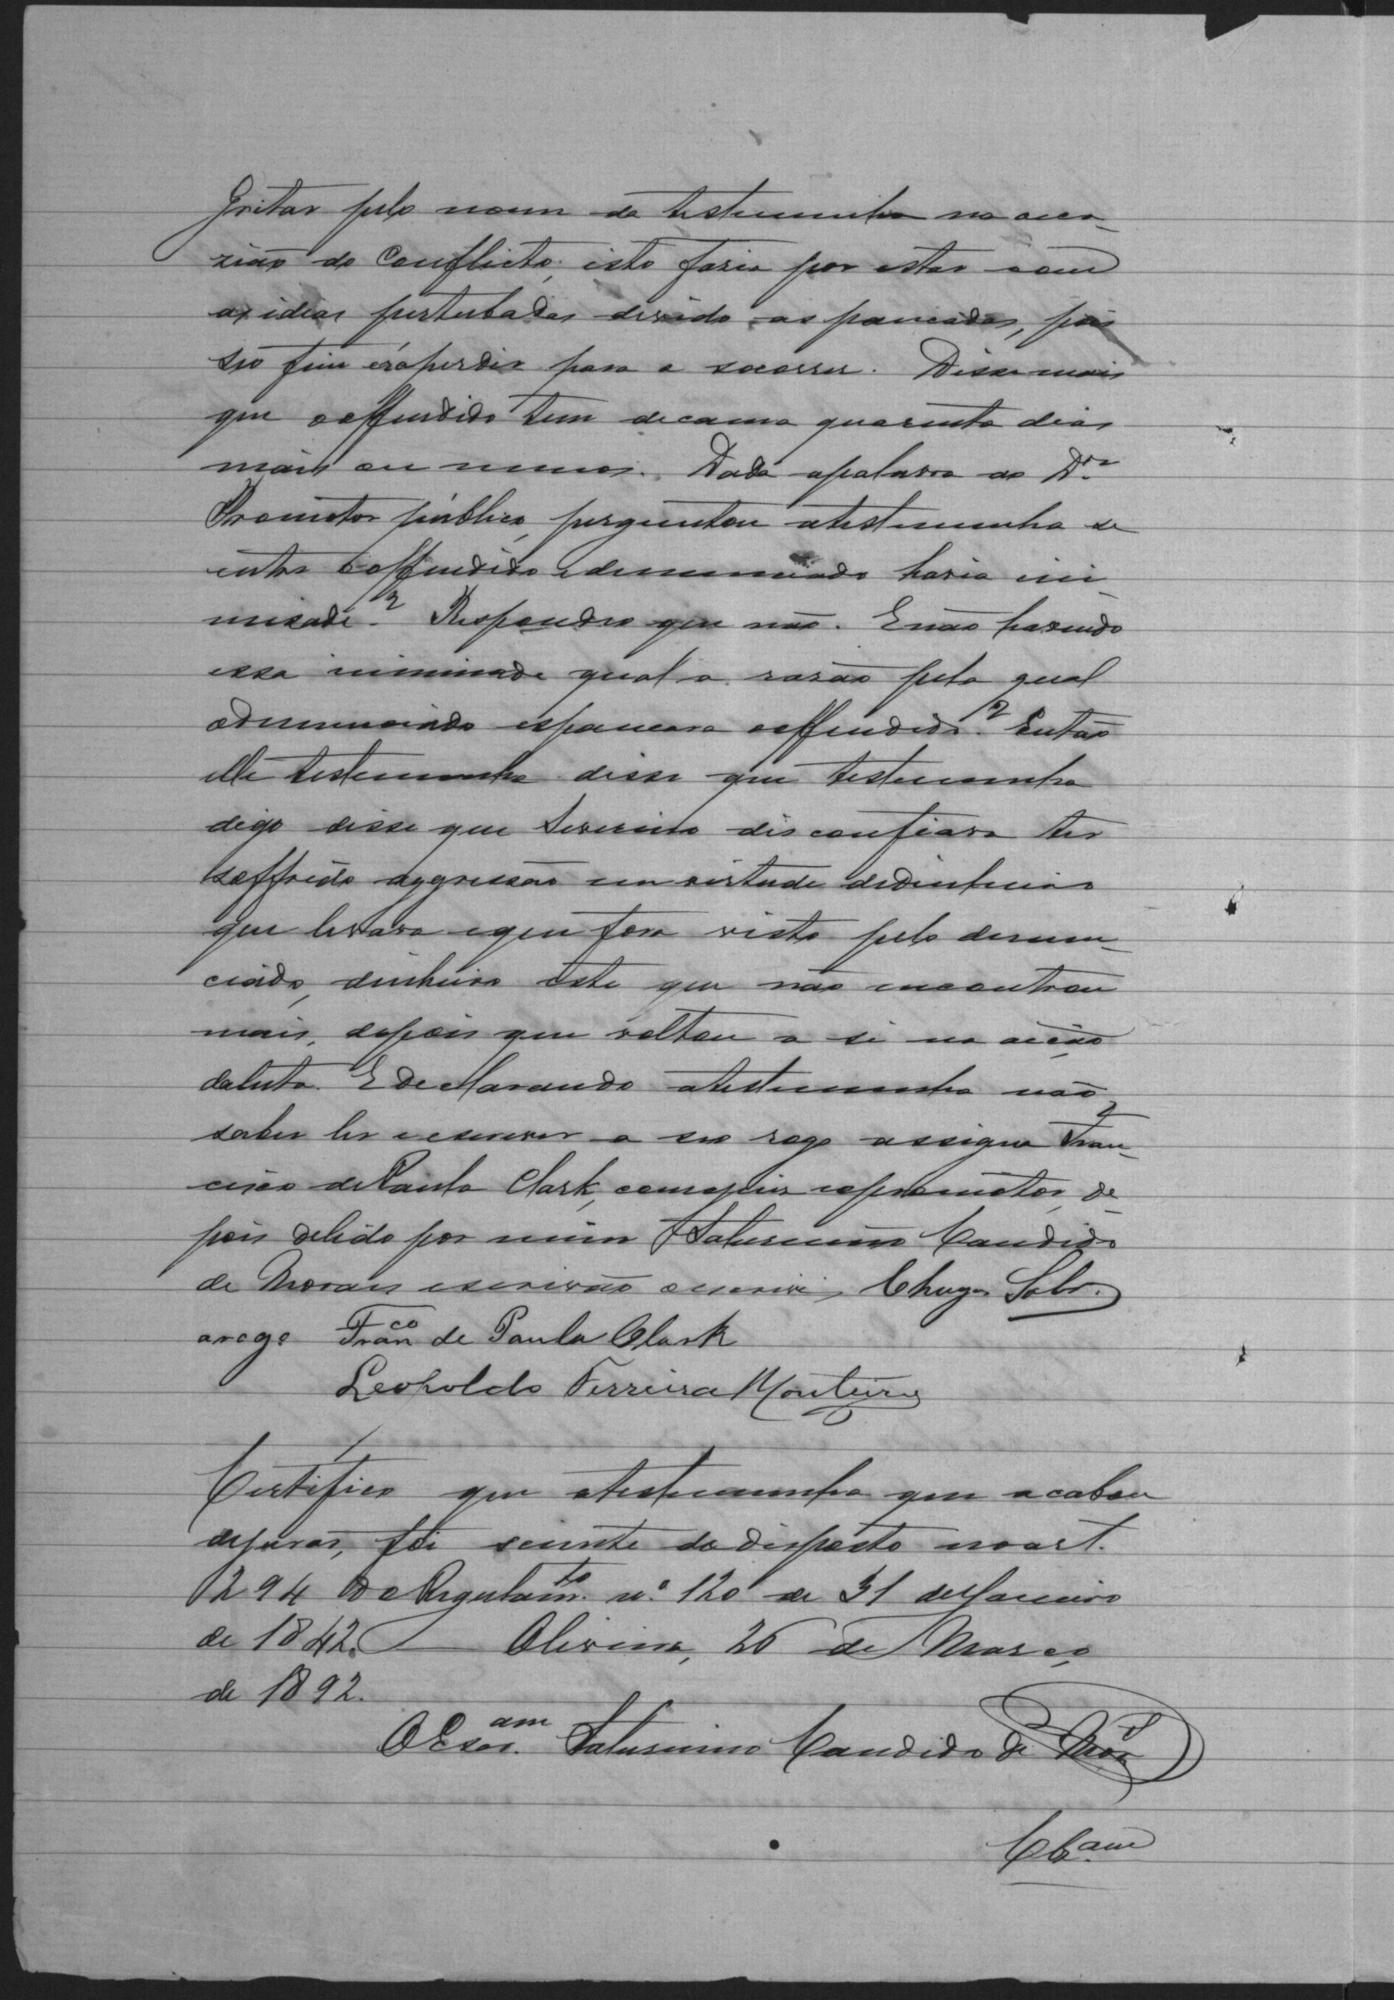 Gritar pelo nome da testemunha na occa-
zião do Conflicto, isto faria por estar com
as ideas perturbadas devido as pancadas, pois
seo fim era pedir para o socorrer. Disse mais
que o offendido tem de cama quarenta dias
mais ou menos. Dada a palavra ao Dr.
Promotor publico, perguntou a testemunha se
entre o offendido e denunciado havia ini
misade? Respondeo que não. E não havendo
essa inimisade qual a rasão pela qual
o denunciado espancara o offendido? Então
elle testemunha disse que testemunha
digo disse que Severino disconfiava ter
soffrido aggressão em virtude de dinheiro
que levava e que fora visto pelo denun-
ciado, dinheiro este que não encontrou
mais, depois que voltou a si na occasião
da luta. E declarando a testemunha não
saber ler e escrever a seo rogo assigna Fran-
cisco de Paula Clark, com o juis e o promotor, de
pois de lido por mim Saturnino Candido
de Moraes escrivão o escrevi, Chagas Sobr.
arogo Franco de Paula Clark
Leopoldo Ferreira Monteiro
Certifico que a testemunha que acabou
de jurar, foi sciente do disposto no art.
294 do Regulamto. nº. 120 de 31 de Janeiro
de 1842. Oliveira, 26 de Março
de 1892.
O Escr. am Saturnino Candido de Mors